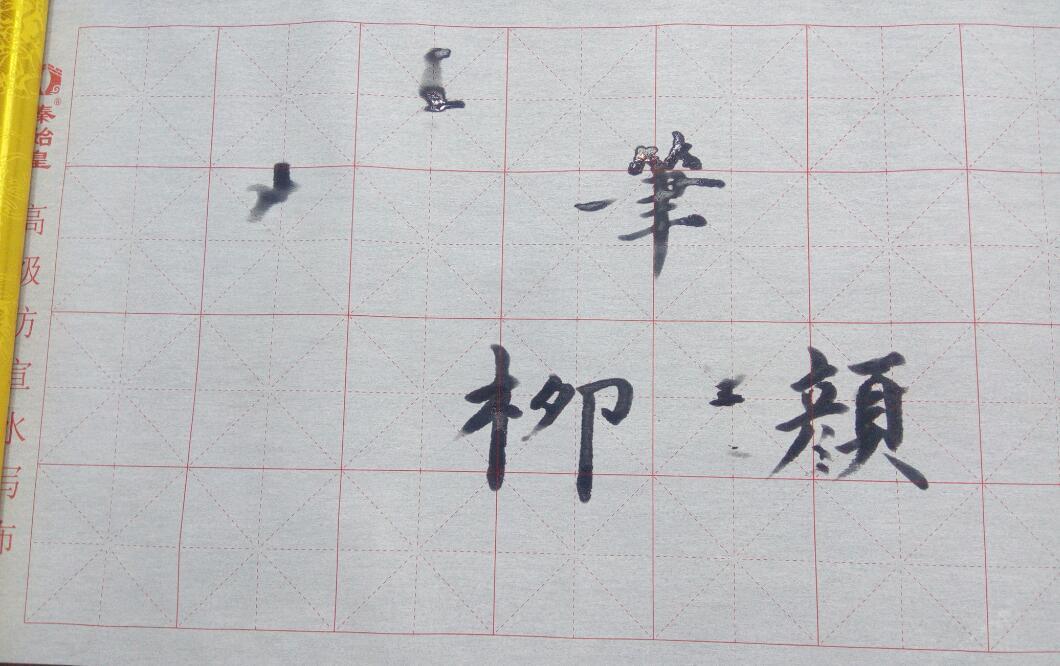 筆
柳 顔
秦始皇®
高级仿宣水写布